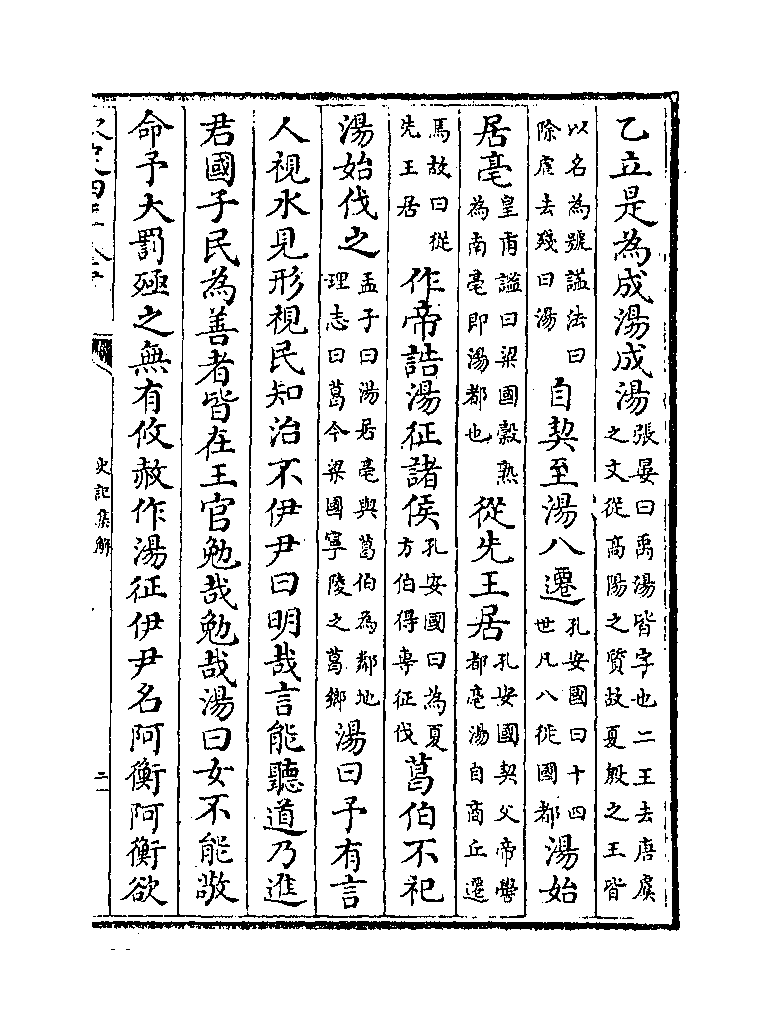 乙立是為成湯成湯張晏曰禹湯皆字也二王去唐虞之文從高陽之質故夏殷之王皆
以名為號諡法曰除虐去殘曰湯自契至湯八遷孔安國曰十四世凡八徙國都湯始
居亳皇甫謐曰梁國穀熟為南亳即湯都也從先王居孔安國契父帝嚳都亳湯自商丘遷
焉故曰從先王居作帝誥湯征諸侯孔安國曰為夏方伯得專征伐葛伯不祀
湯始伐之孟子曰湯居亳與葛伯為鄰地理志曰葛今梁國寧陵之葛鄉湯曰予有言
人視水見形視民知治不伊尹曰明哉言能聽道乃進
君國子民為善者皆在王官勉哉勉哉湯曰女不能敬
命予大罰殛之無有攸赦作湯征伊尹名阿衡阿衡欲
史記集解
二